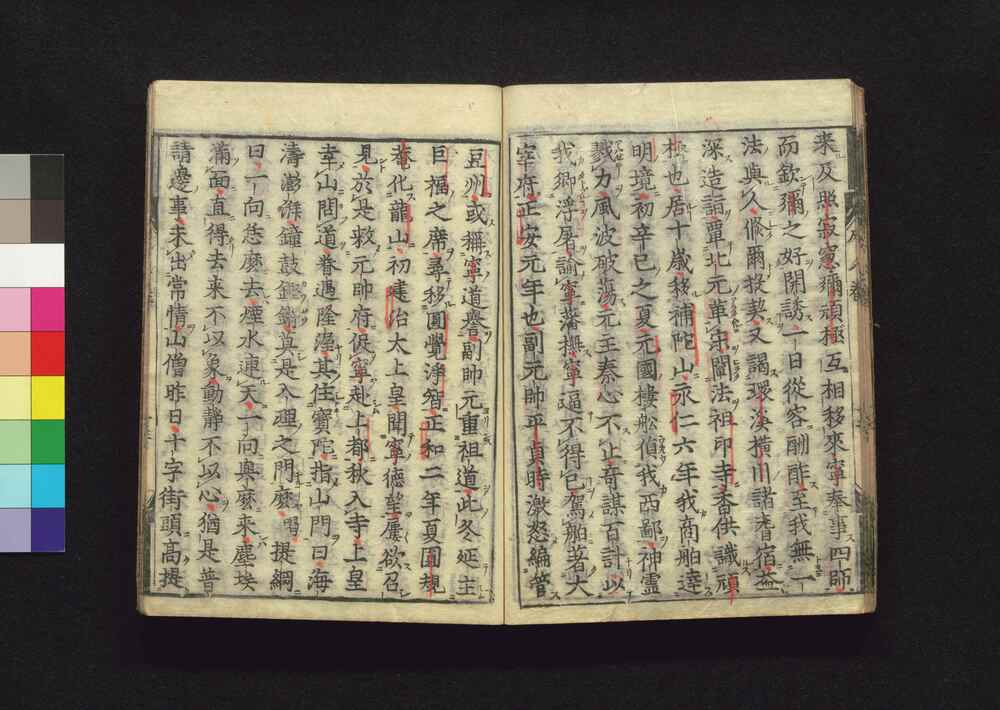 来及照寂窻彌頑極互相移來寧奉事四師
而欽彌之好開誘一日從容酬酢至我無一
法與人倐爾投契又謁環溪橫川諸耆宿益
深造詣覃北元革宋闡法祖印寺香供識頑
極也居十歲移補陀山永仁六年我商舶逹
明境初辛巳之夏元國棲船伯我西鄙神霊
戮力風波破蕩元王秦心不止奇謀百計以
我鄉浮屠諭寧藩撰寧逼不得已駕舶著大
宰府正安元年也副元帥平貞時激怒編管
豆州或稱寧道譽副帥元重祖道此冬延主
巨福之席尋移圓覺淨智正和二年夏圓規
菴化龍山初建治太上皇聞寧德望屢欲召
見於是救元帥府促寧赴上都秋入寺上皇
幸山問道眷遇隆渥其住寶陀指山門曰海
濤澎鐘鼓鏗鏘真是入理之門麼喝提綱
曰一向恁麼去烟水連天一向與麼来塵埃
滿面直得去来不以象動靜不以心猶是普
請邊事未出常情山僧昨日十字街頭高提